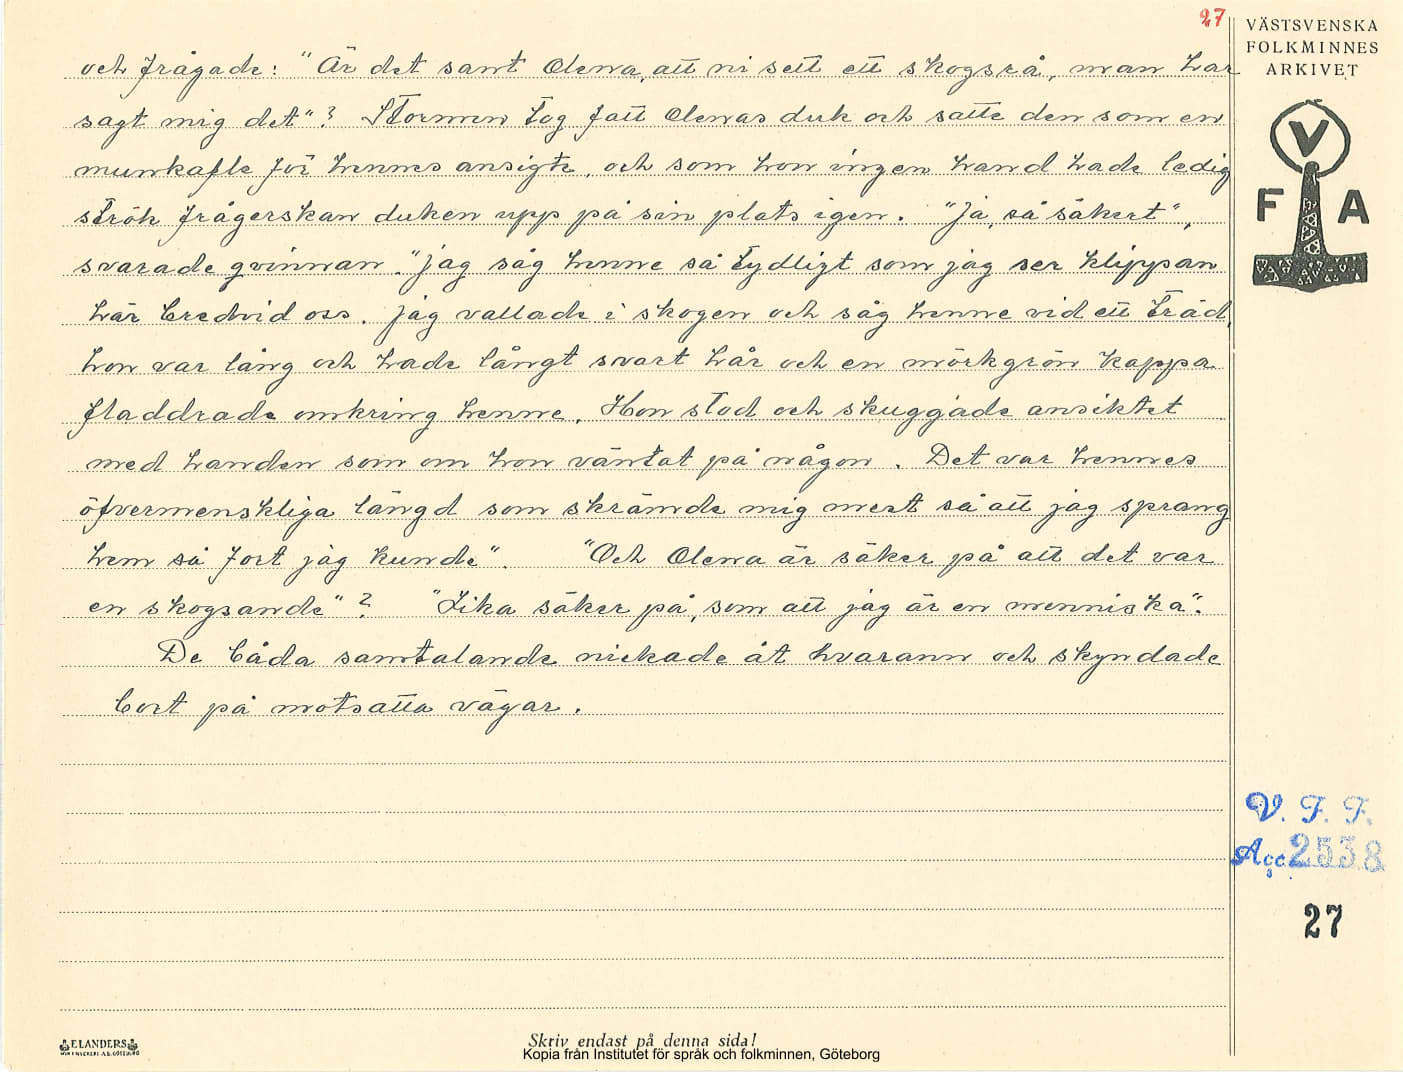 27
och frågade: "Är det sant Olena, att ni sett ett skogsrå, man har
sagt mig det"? Stormen tog fatt Olenas duk och satte den som en
munkafle för hennes ansigte, och som hon ingen hand hade ledig
ströh frågerskan duken upp på sin plats igen. "Ja, så säkert",
svarade qvinnan. "jag såg henne så tydligt som jag ser klippan
här bredvid oss. jag vallade i skogen och såg henne vid ett träd,
hon var lång och hade långt svart hår och en mörkgrön kappa
fladdrade omkring henne. Hon stod och skuggade ansiktet
med handen som om hon väntat på någon. Det var hennes
öfvermenskliga längd som skrämde mig mest så att jag sprang
hem så fort jag kunde". "Och Olena är säker på att det var
en skogsande"? "Lika säker på, som att jag är en menniska".
De båda samtalande nickade åt hvarann och skyndade
bort på motsatta vägar.
VÄSTSVENSKA
FOLKMINNES
ARKIVET
V
F A
V. F. F.
Acc. 2538
27
ELANDERS
Skriv endast på denna sida!
Kopia från Institutet för språk och folkminnen, Göteborg